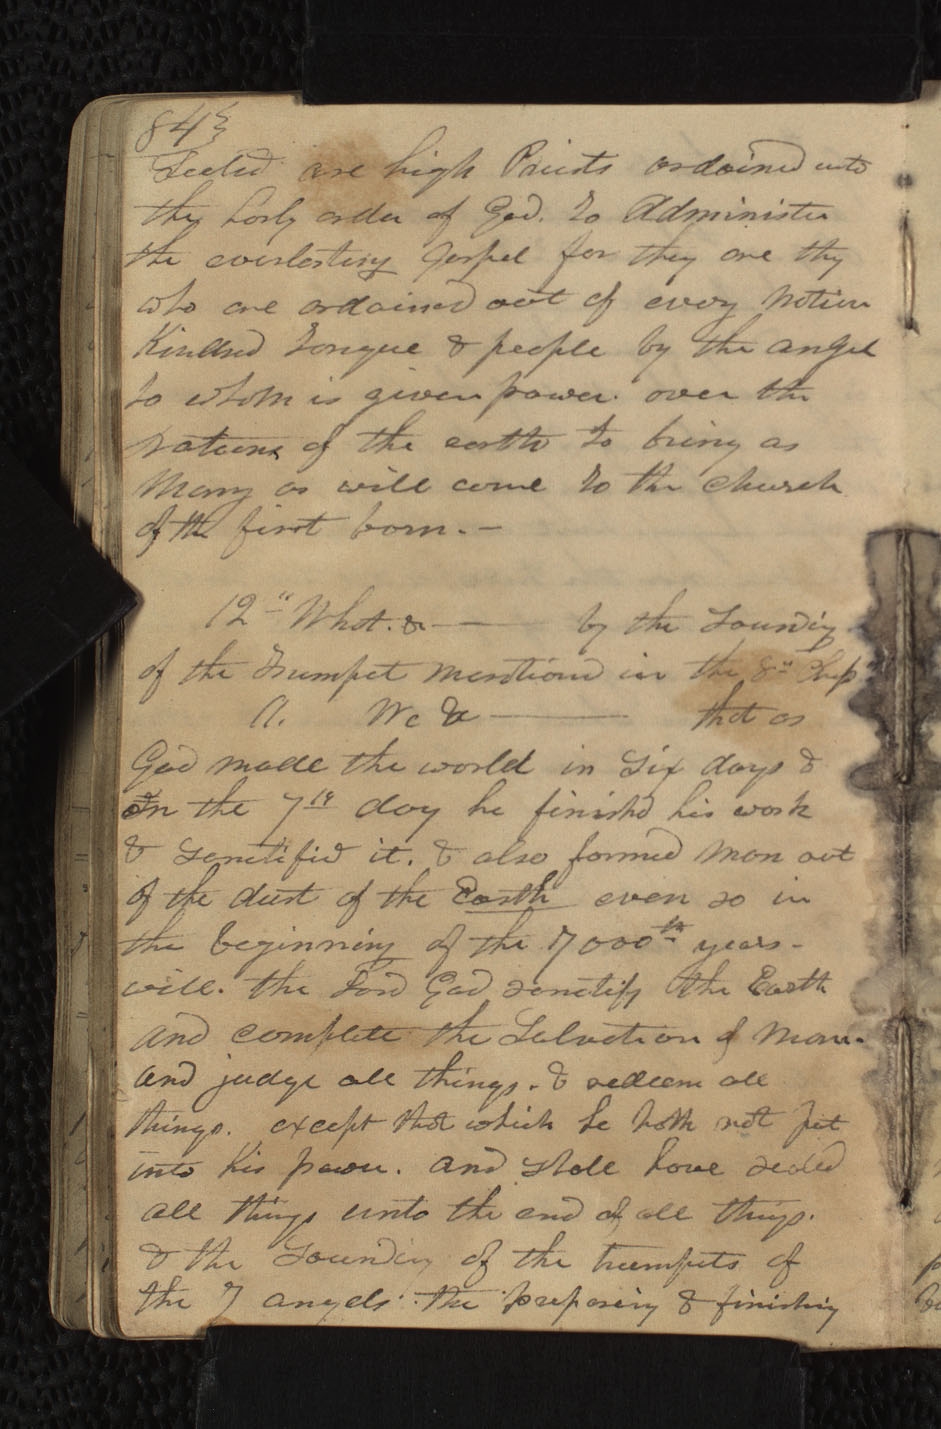 84
Seeled are high Priests ordained unto
the holy order of God. to Administer
the everlasting gospel for they are they
who are ordained out of every Nation
Kindred Tongue & people by the angel
to whom is given power. over the
nations of the earth to bring as
Many as will come to the church
of the first born. —
12" What. &c — by the Sounding
of the Trumpet mentiond in the 8" Chap
A. We &c — that as
God made the world in Six days &
In the 7th day he finishd his work
& sanctified it. & also formed Man out
of the dust of the Earth even so in
the beginning of the 7000th years -
will. the Lord God sanctify the Earth
and complete the Salvation of Man.
and judge all things. & redeem all
things. except that which he hath not put
into his power. and shall have sealed
all things unto the end of all things.
& the Sounding of the trumpets of
the 7 angels. the prepareing & finishing